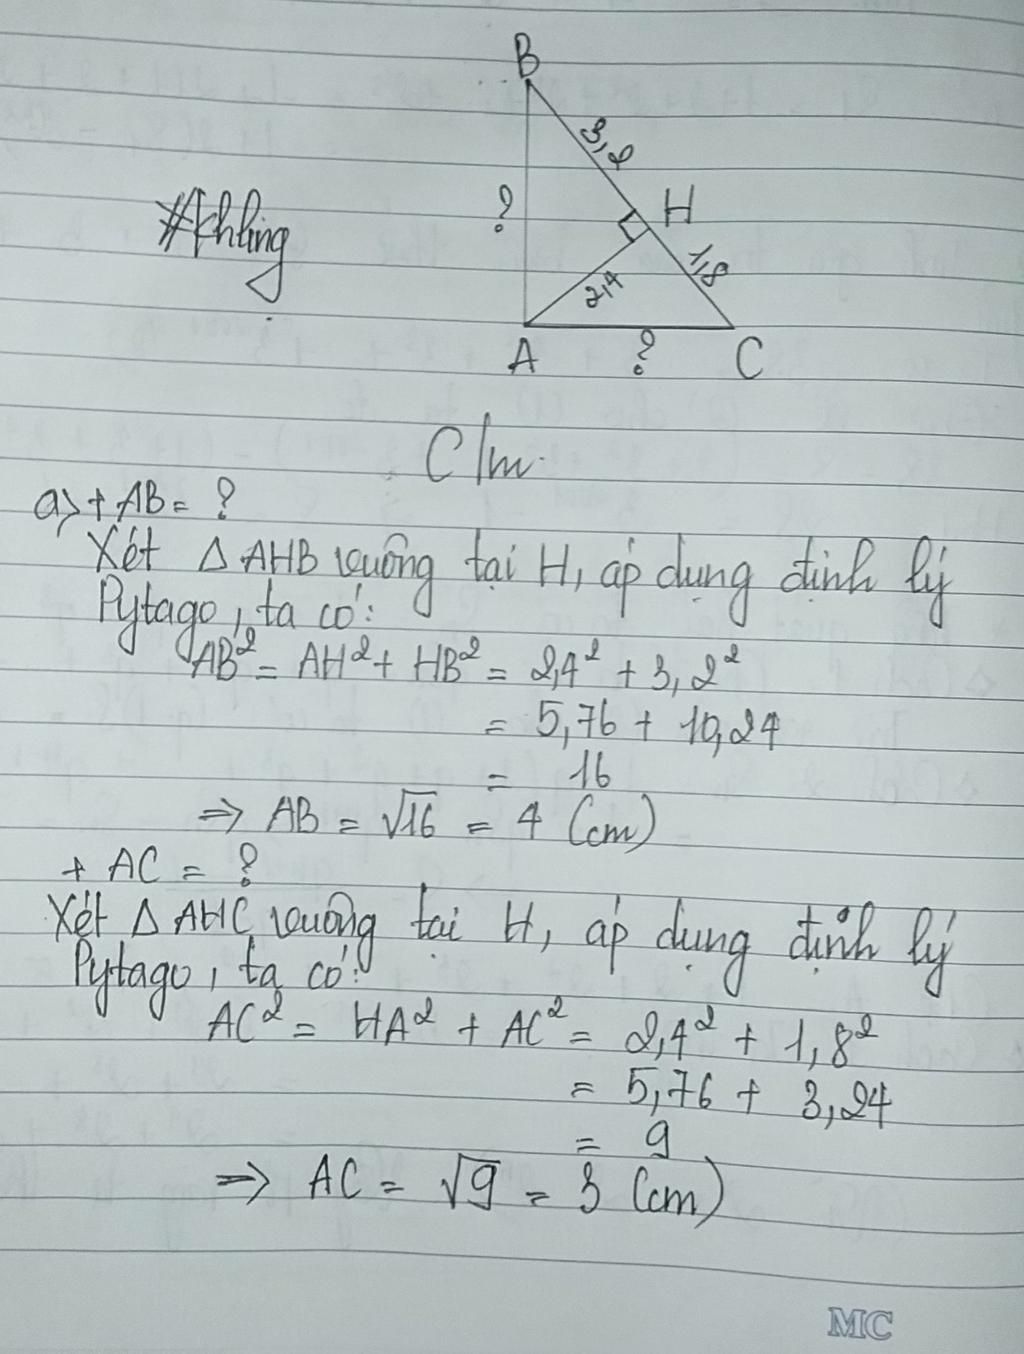 B
3,2
#khling
?
H
1,8
2,4
A
?
C
C/m
a) + AB = ?
Xét Δ AHB vuông tại H, áp dụng định lý
Pytago, ta có:
AB² = AH² + HB² = 2,4² + 3,2²
= 5,76 + 10,24
= 16
=> AB = √16 = 4 (cm)
+ AC = ?
Xét Δ AHC vuông tại H, áp dụng định lý
Pytago, ta có:
AC² = HA² + AC² = 2,4² + 1,8²
= 5,76 + 3,24
= 9
=> AC = √9 = 3 (cm)
MC